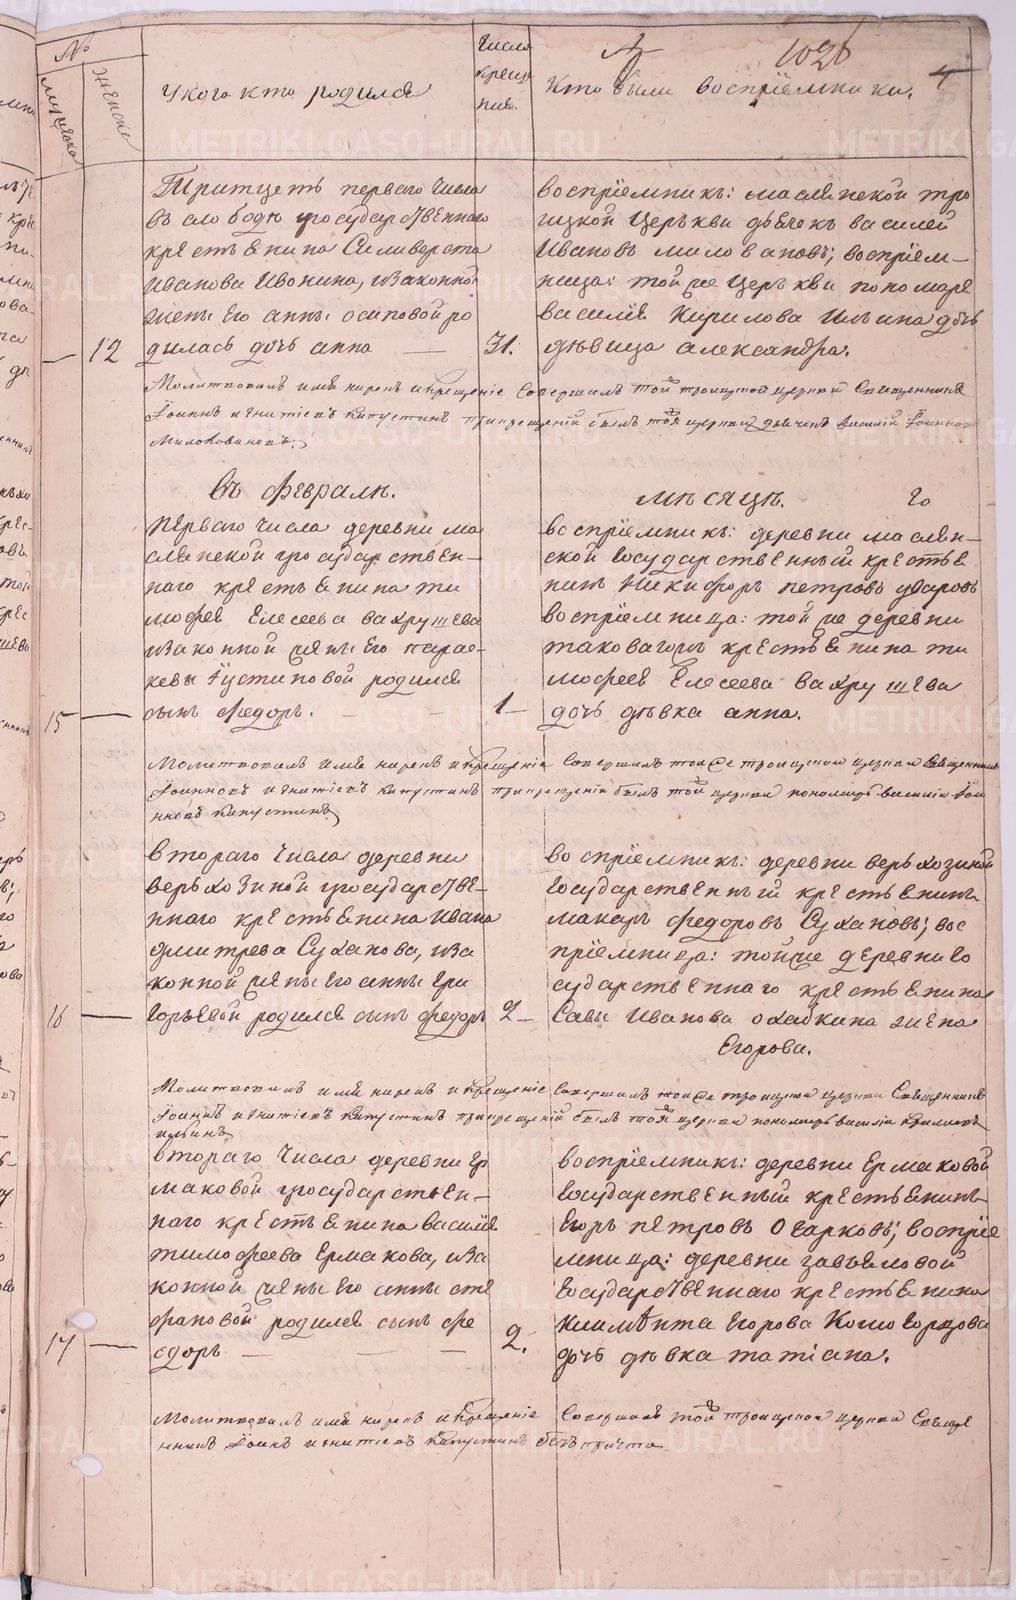 №
мужеска
женска
У кого кто родился
Число крещения.
Кто были восприемники.
1026
4
Тритцеть перваго числа
въ слободѣ государственнаго
крестьенина Селиверста
Иванова Ивонина, изаконной
жены Его анны осиповой ро
12
дилась дочь анна
31.
восприемникъ: маслянской тро
ицкой Церькви дьячокъ василей
Ивановъ миловановъ; восприем-
ница: той же Церькви пономаря
василия Кирилова Ильина дочь
дѣвица александра.
Молитвовалъ имя нарекъ и крещение совершалъ той троицкой церкви Священникъ
Иоаннъ Игнатиевъ Капустинъ при крещений былъ той церкви дьячекъ василий Иоанновъ
Миловановъ.
въ феврале.
месяце.
Го
перваго числа деревни ма
слянской государствен-
наго крестьенина ти
мофея Елесеева вахрушева
изаконной жены Его парас-
кевы Иустиновой родился
15
сынъ федоръ.
1
восприемникъ: деревни маслян-
ской Государственный крестье
нинъ Никифоръ петровъ уваровъ
восприемница: той же деревни
таковагожъ крестьенина ти
мофеея Елесеева вахрушева
дочь дѣвка анна.
Молитвовалъ имя нарекъ и крещение совершалъ тойже троицкой церкви Священникъ
Иоанновъ Игнатиевъ Капустинъ при крещении былъ той церкви пономарь василий Иоа
нновъ Капустинъ
втораго числа деревни
верьхозиной государстве-
ннаго крестьенина ивана
дмитрева Суханова, иза
конной жены его анны гри
16
горьевой родился сынъ федоръ
2
восприемникъ: деревни верьхозиной
Государственный крестьенинъ
макаръ федоровъ Сухановъ; вос
приемница: тойже деревни Го
сударственнаго крестьенина
Савы Иванова охабкина жена
Егорова.
Молитвовалъ имя нарекъ и крещение совершалъ тойже троицкой церкви Священникъ
Иоаннъ Игнатиевъ Капустинъ при крещений былъ той церкви пономарь василий Кириловъ
ильинъ
втораго числа деревни Ер
маковой государствен-
наго крестьенина василия
тимофеева Ермакова, иза
конной жены Его анны сте
фановой родился сынъ фе
17
едоръ
2.
восприемникъ: деревни Ермаковой
Государственный крестьенинъ
Егоръ петровъ Огарковъ; восприе
мница: деревни завьяловой
Государственнаго крестьенина
Климента Егорова
дочь дѣвка татиана.
Молитвовалъ имя нарекъ и крещение совершалъ той троицкой церкви Свяще
нникъ Иоаннъ Игнатиевъ Капустинъ безъ причта
METRIKI.GASO-URAL.RU